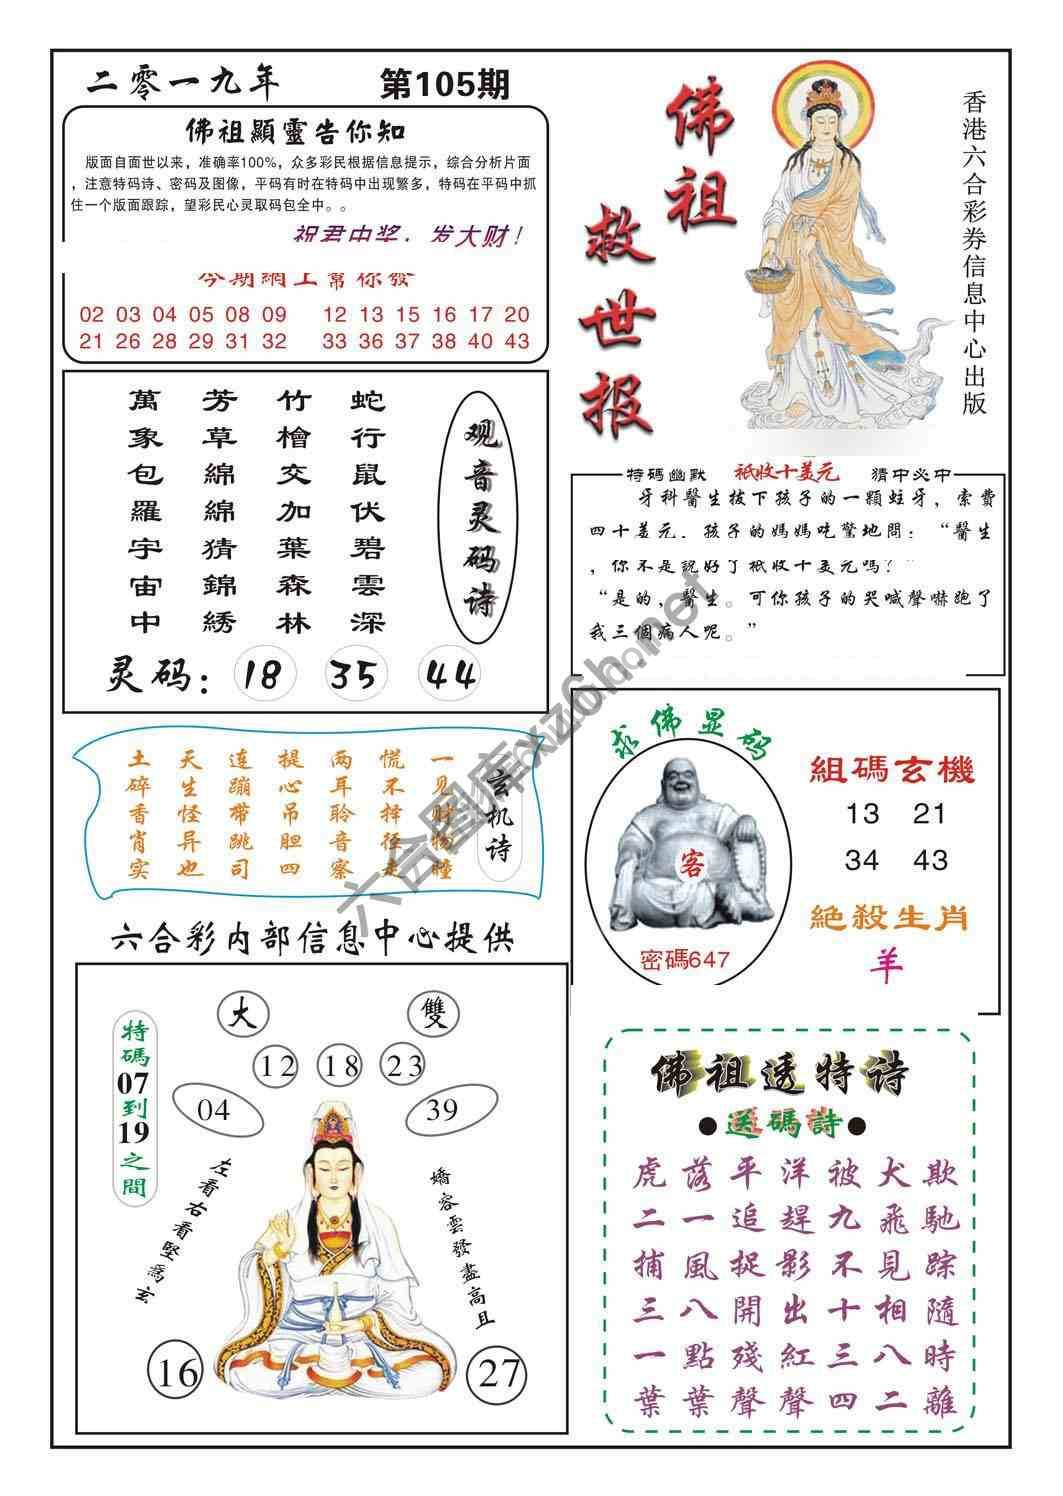 二零一九年
第105期
佛祖顯靈告你知
版面自面世以来，准确率100%，众多彩民根据信息提示，综合分析片面
，注意特码诗、密码及图像，平码有时在特码中出现繁多，特码在平码中抓
住一个版面跟踪，望彩民心灵取码包全中。。
祝君中奖，发大财！
今期網上幫你發
02 03 04 05 08 09 12 13 15 16 17 20
21 26 28 29 31 32 33 36 37 38 40 43
佛祖
救世报
香港六合彩券信息中心出版
观音灵码诗
蛇行鼠伏碧雲深
竹檜交加葉森林
芳草綿綿猜錦綉
萬象包羅宇宙中
灵码：18 35 44
特碼幽默 祇收十美元 猜中必中
牙科醫生拔下孩子的一顆蛀牙，索費
四十美元．孩子的媽媽吃驚地問：“醫生
，你不是説好了祇收十美元嗎？”
“是的，醫生。可你孩子的哭喊聲嚇跑了
我三個病人呢。”
玄机诗
一见财物瞳
慌不择径走
两耳聆音察
提心吊胆四
连蹦带跳司
天生怪异也
土碎香肖实
求佛显码
客
密碼647
組碼玄機
13 21
34 43
絕殺生肖
羊
六合彩内部信息中心提供
大 雙
12 18 23
04 39
特碼07到19之間
左看右看堅爲玄
嬌容雲發盡高且
16 27
佛祖透特诗
●送碼詩●
虎落平洋被犬欺
二一追趕九飛馳
捕風捉影不見踪
三八開出十相隨
一點殘紅三八時
葉葉聲聲四二離
六合图库xz6h.net